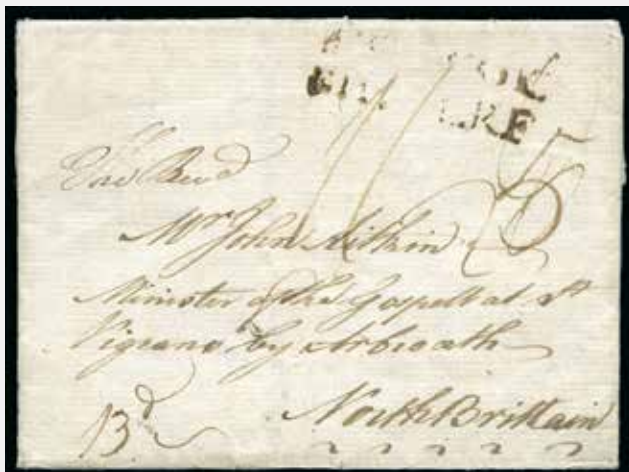 The Revd
Mr John Aitkin
Minister of the Gospell at St
Vigeans by Arbroath
North Brittain
13d